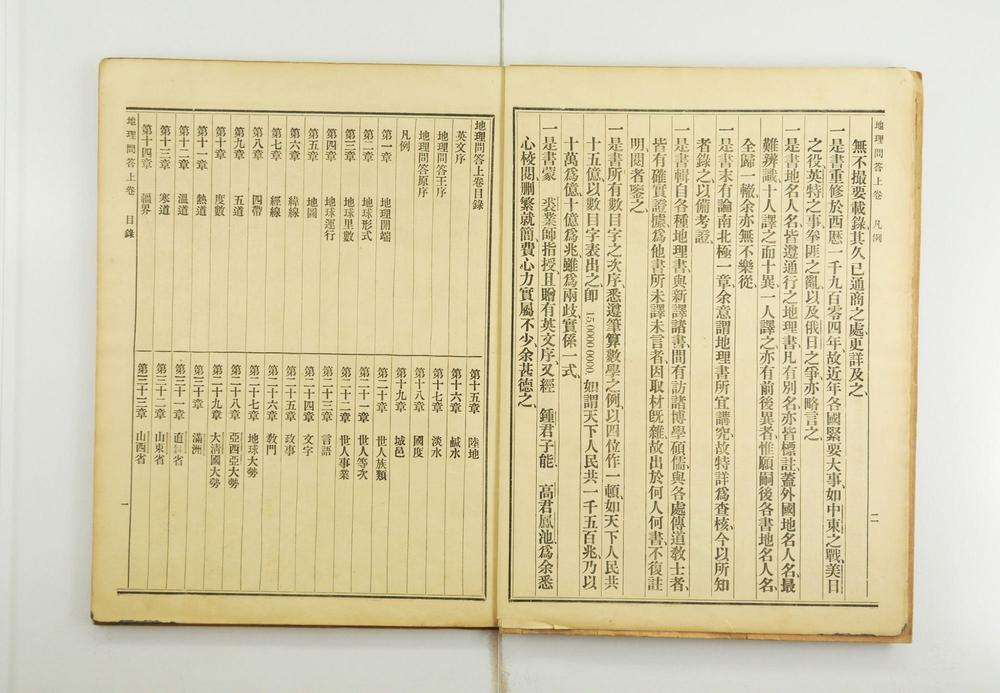 地理問答上卷 凡例 二
無不撮要載錄其久已通商之處、更詳及之、
一是書重修於西歷一千九百零四年、故近年各國緊要大事、如中東之戰、美日
之役、英特之事、拳匪之亂、以及俄日之爭、亦略言之、
一是書地名人名、皆遵通行之地理書、凡有別名、亦皆標註、蓋外國地名人名、最
難辨識、十人譯之而十異、一人譯之亦有前後異者、惟願嗣後各書地名人名、
全歸一轍、余亦無不樂從、
一是書末有論南北極一章、余意謂地理書所宜講究、故特詳爲查核、今以所知
者錄之、以備考證、
一是書輯自各種地理書、與新譯諸書、間有訪諸博學碩儒、與各處傳道敎士者、
皆有確實證據、爲他書所未譯未言者、因取材旣雜、故出於何人何書、不復註
明、閱者鑒之、
一是書所有數目字之次序、悉遵筆算數學之例、以四位作一頓、如天下人民共
十五億、以數目字表出之、卽 15,0000,0000、如謂天下人民共一千五百兆、乃以
十萬爲億、十億爲兆、雖爲兩歧、實係一式、
一是書蒙 裘業師指授、且贈有英文序、又經 鍾君子能、 高君鳳池、爲余悉
心校閱、刪繁就簡、費心力實屬不少、余甚德之、
地理問答上卷目錄
英文序
地理問答王序
地理問答原序
凡例
第一章 地理開端
第二章 地球形式
第三章 地球里數
第四章 地球運行
第五章 地圖
第六章 緯線
第七章 經線
第八章 四帶
第九章 五道
第十章 度數
第十一章 熱道
第十二章 溫道
第十三章 寒道
第十四章 疆界
第十五章 陸地
第十六章 鹹水
第十七章 淡水
第十八章 國度
第十九章 城邑
第二十章 世人族類
第二十一章 世人等次
第二十二章 世人事業
第二十三章 言語
第二十四章 文字
第二十五章 政事
第二十六章 敎門
第二十七章 地球大勢
第二十八章 亞西亞大勢
第二十九章 大淸國大勢
第三十章 滿洲
第三十一章 直隸省
第三十二章 山東省
第三十三章 山西省
地理問答上卷 目錄 一